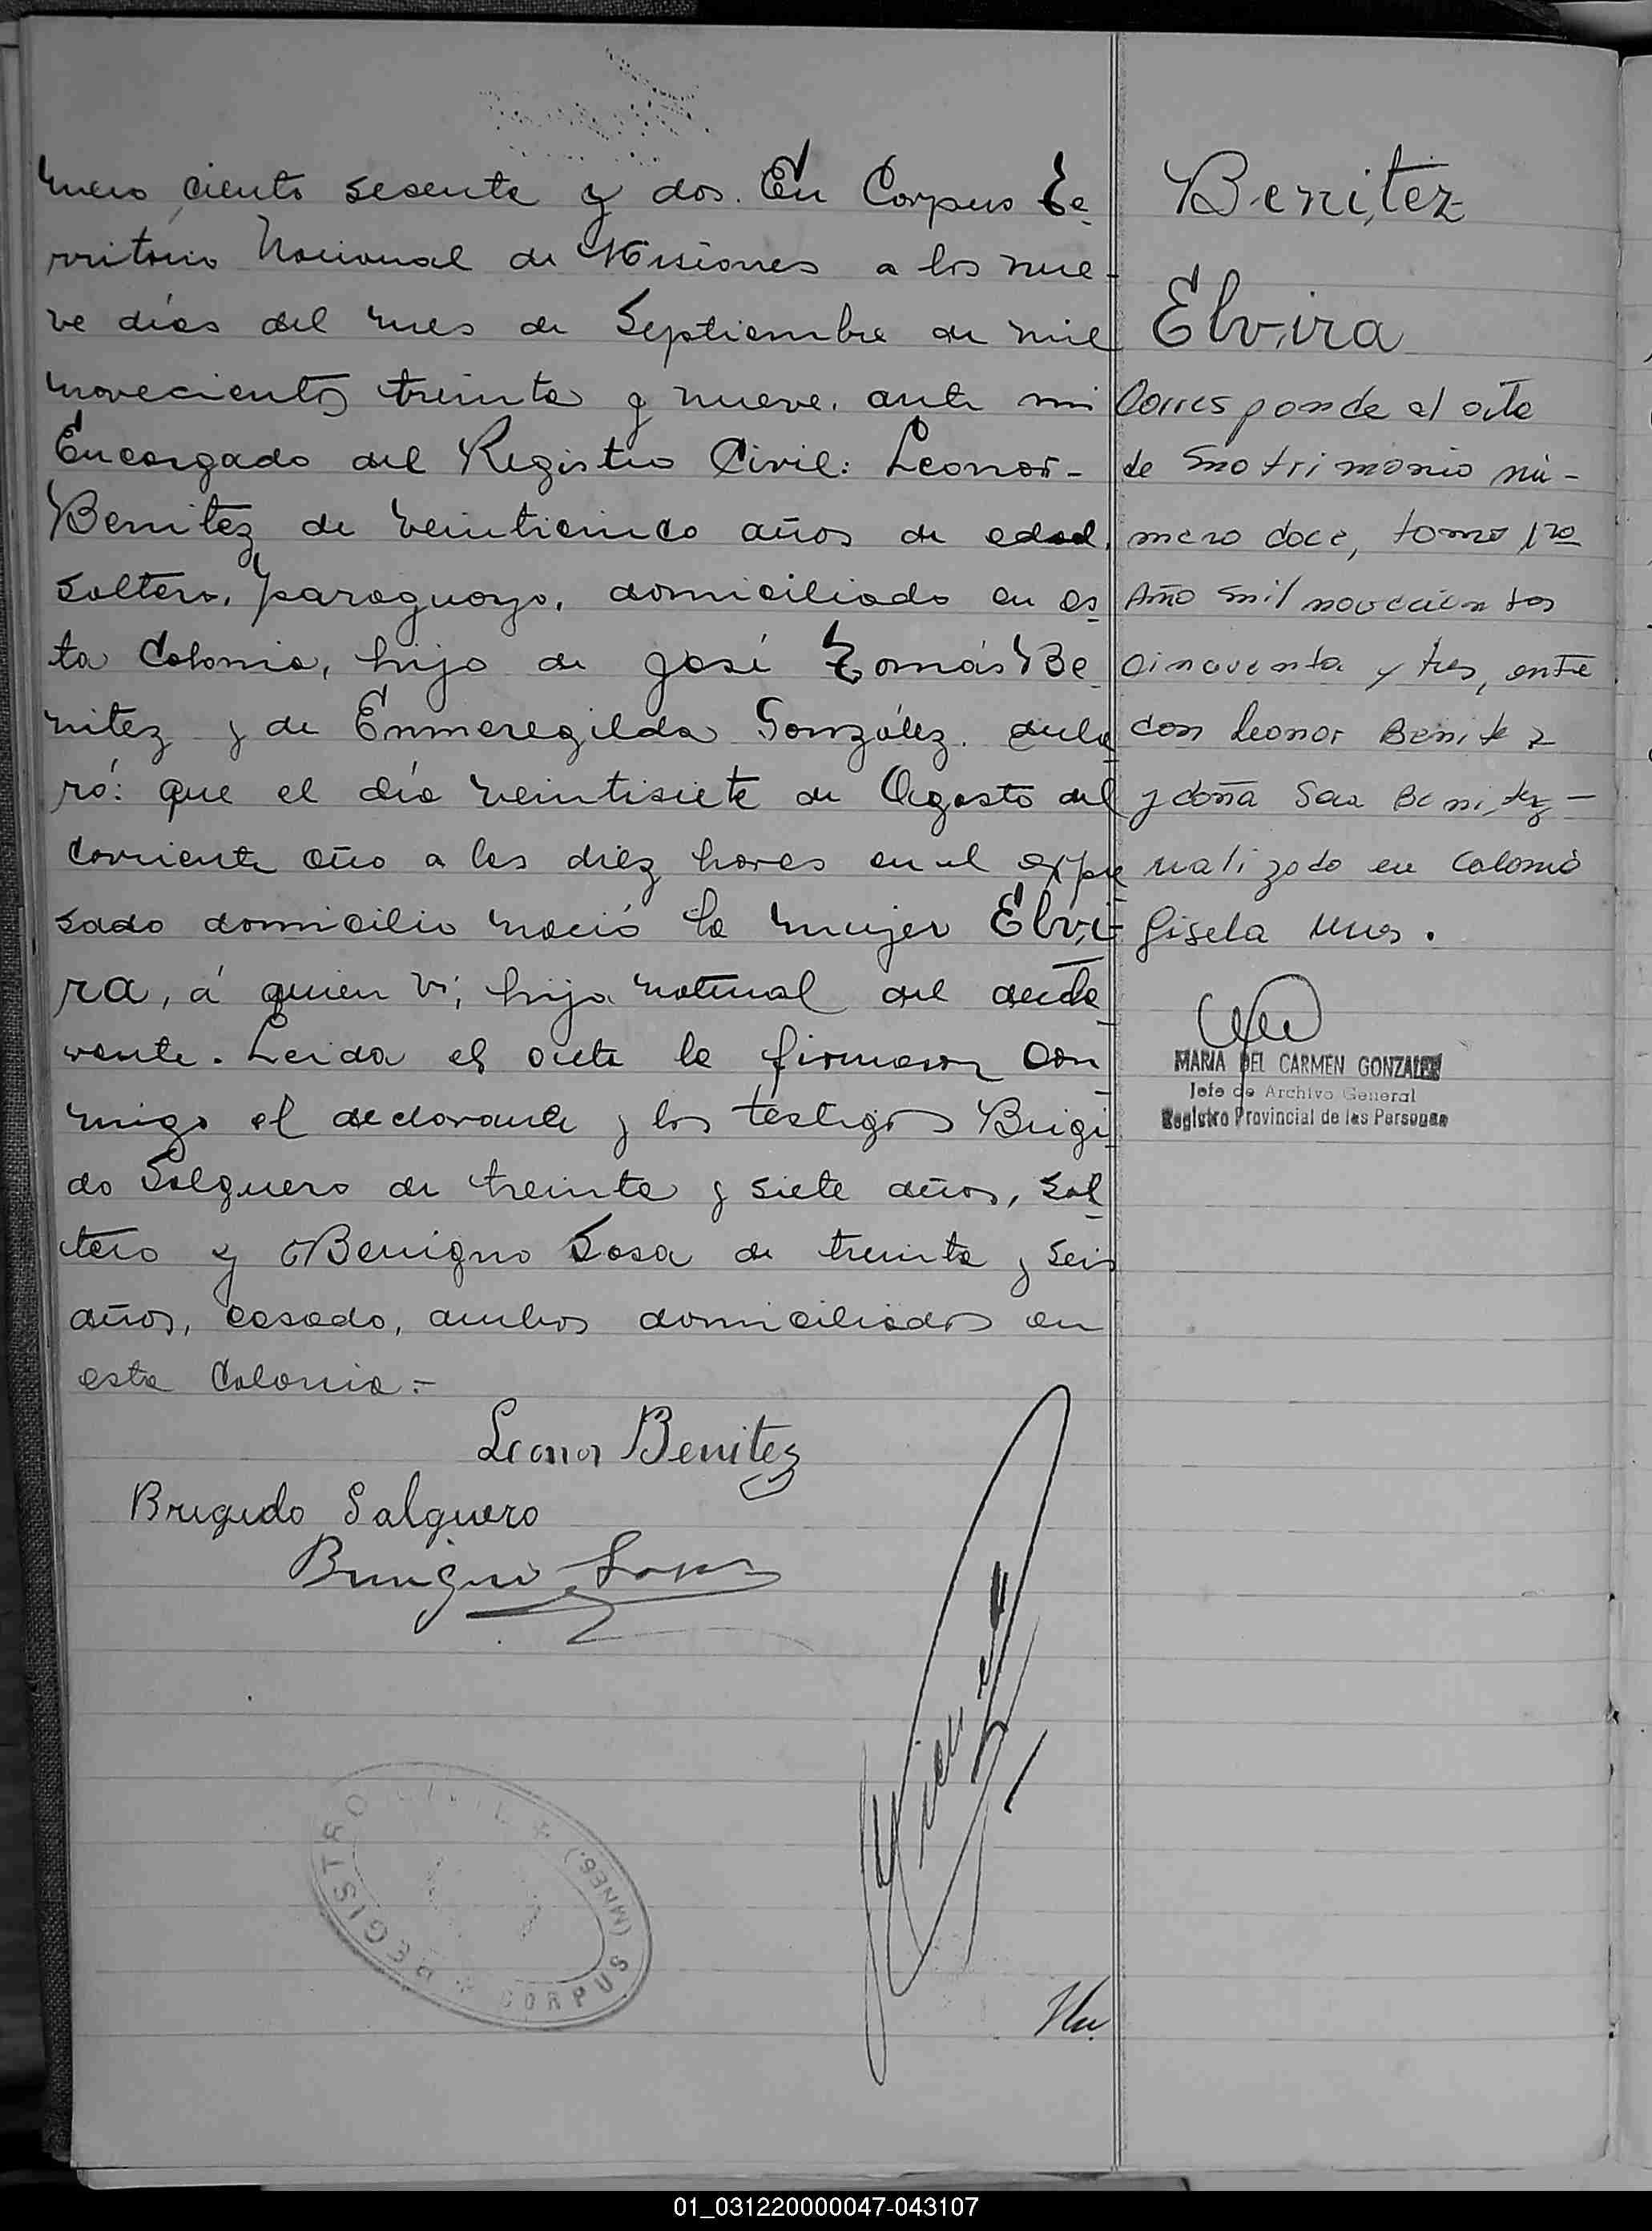 mero ciento sesenta y dos. En Corpus Te
rritorio Nacional de Misiones a los nue-
ve días del mes de Septiembre de mil
novecientos treinta y nueve. ante mi
Encargado del Registro Civil: Leonor-
Benitez de veinticinco años de edad.
soltero, paraguayo, domiciliado en es
ta Colonia, hijo de José Tomás Be
nitez y de Enmeregilda González. decla
ró: que el día veintisiete de Agosto del
corriente año a las diez horas en el expre
sado domicilio nació la mujer Elvi-
ra, á quien vi, hija natural del decla
rante. Leida el acta la firmaron con
migo el declarante y los testigos Brigi
do Salguero de treinta y siete años, sol
tero y Benigno Sosa de treinta y seis
años, casado, ambos domiciliados en
esta Colonia.-
Leonor Benitez
Brigido Salguero
Benigno Sosa
REGISTRO CIVIL * CORPUS (MNES.) *
Benitez
Elvira
Corresponde al acta
de matrimonio nú-
mero doce, tomo 1ro
Año mil novecientos
cincuenta y tres, entre
don Leonor Benitez
y doña Benitez-
realizado en Colonia
Gisela Mnes.
MARIA DEL CARMEN GONZALEZ
Jefe de Archivo General
Registro Provincial de las Personas
01_031220000047-043107